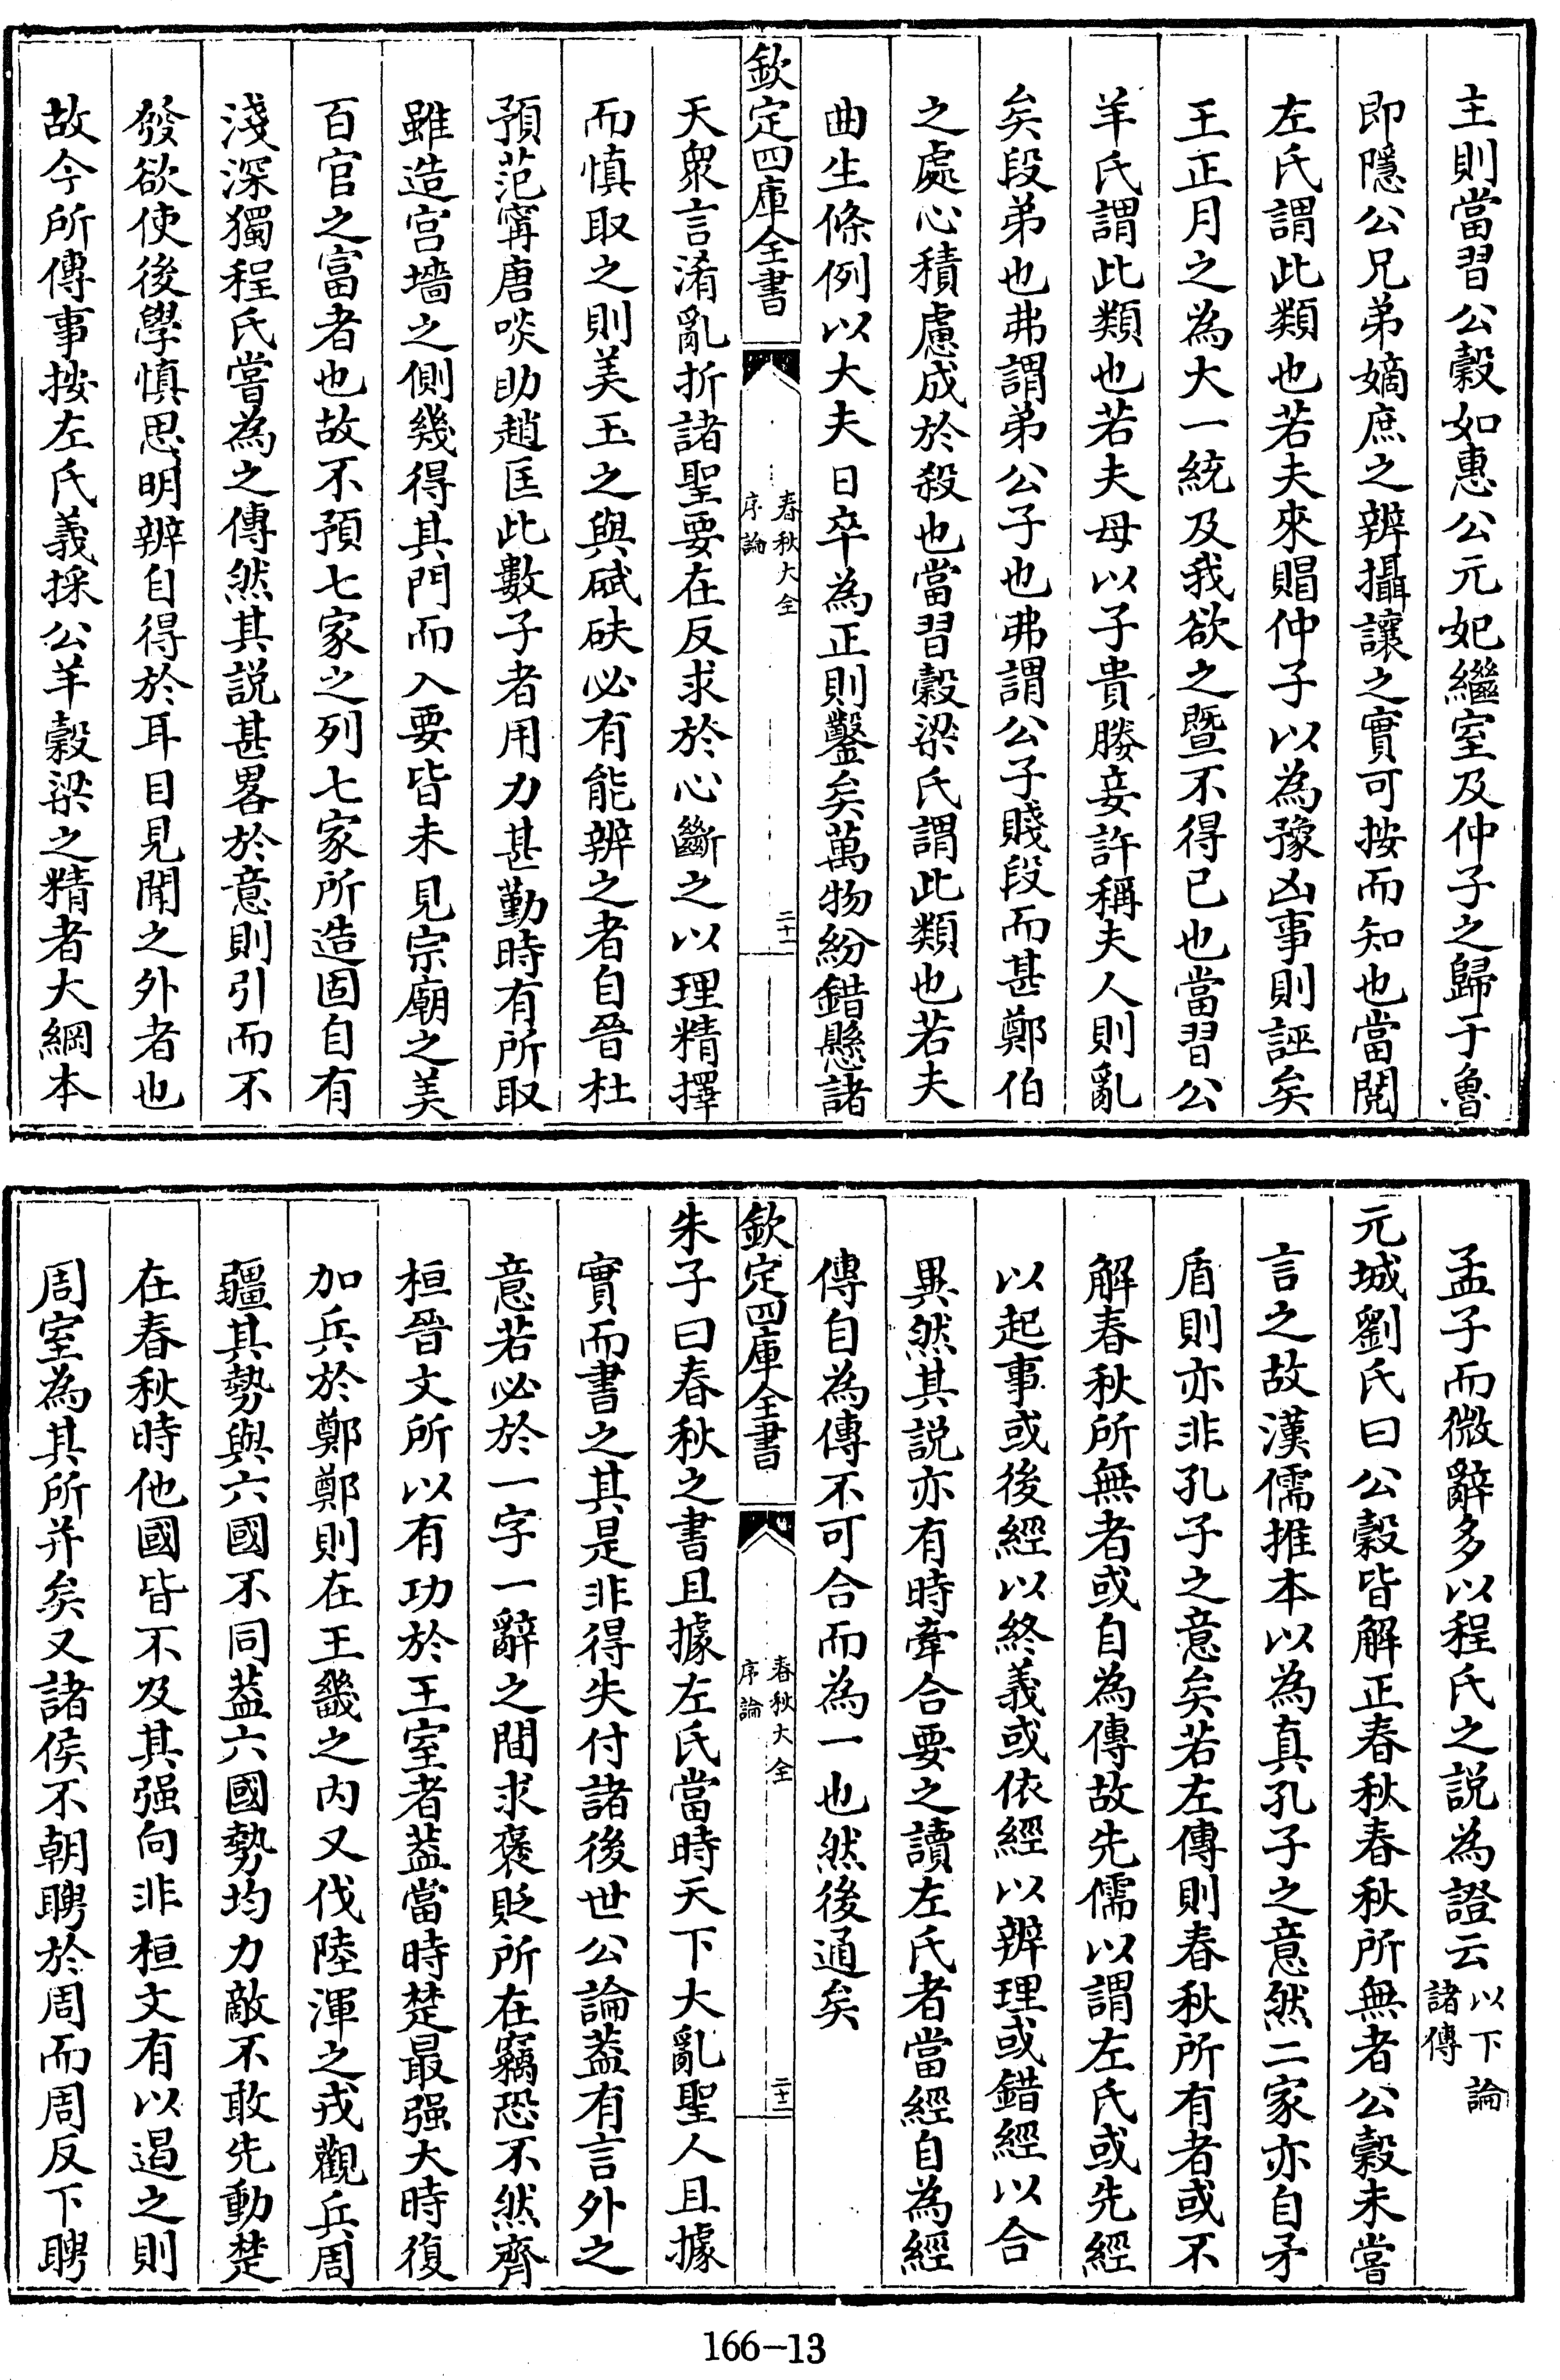 主則當習公糓如惠公元妃繼室及仲子之歸于魯
即隱公兄弟嫡庶之辨攝讓之實可按而知也當閲
左氏謂此類也若夫來賵仲子以為豫凶事則誣矣
王正月之為大一統及我欲之暨不得已也當習公
羊氏謂此類也若夫母以子貴媵妾許稱夫人則亂
矣段弟也弗謂弟公子也弗謂公子賤段而甚鄭伯
之處心積慮成於殺也當習糓梁氏謂此類也若夫
曲生條例以大夫日卒為正則鑿矣萬物紛錯懸諸
欽定四庫全書
春秋大全
序論
二十一
天衆言淆亂折諸聖要在反求於心斷之以理精擇
而慎取之則美玉之與碔砆必有能辨之者自晉杜
預范甯唐啖助趙匡此數子者用力甚勤時有所取
雖造宫墻之側幾得其門而入要皆未見宗廟之美
百官之富者也故不預七家之列七家所造固自有
淺深獨程氏嘗為之傳然其説甚畧於意則引而不
發欲使後學慎思明辨自得於耳目見聞之外者也
故今所傳事按左氏義採公羊糓梁之精者大綱本
孟子而微辭多以程氏之説為證云以下論
諸傳
元城劉氏曰公糓皆解正春秋春秋所無者公糓未嘗
言之故漢儒推本以為真孔子之意然二家亦自矛
盾則亦非孔子之意矣若左傳則春秋所有者或不
解春秋所無者或自為傳故先儒以謂左氏或先經
以起事或後經以終義或依經以辨理或錯經以合
異然其説亦有時牽合要之讀左氏者當經自為經
傳自為傳不可合而為一也然後通矣
欽定四庫全書
春秋大全
序論
二十二
朱子曰春秋之書且據左氏當時天下大亂聖人且據
實而書之其是非得失付諸後世公論葢有言外之
意若必於一字一辭之間求褒貶所在竊恐不然齊
桓晉文所以有功於王室者葢當時楚最强大時復
加兵於鄭鄭則在王畿之内又伐陸渾之戎觀兵周
疆其勢與六國不同葢六國勢均力敵不敢先動楚
在春秋時他國皆不及其强向非桓文有以遏之則
周室為其所并矣又諸侯不朝聘於周而周反下聘
166-13